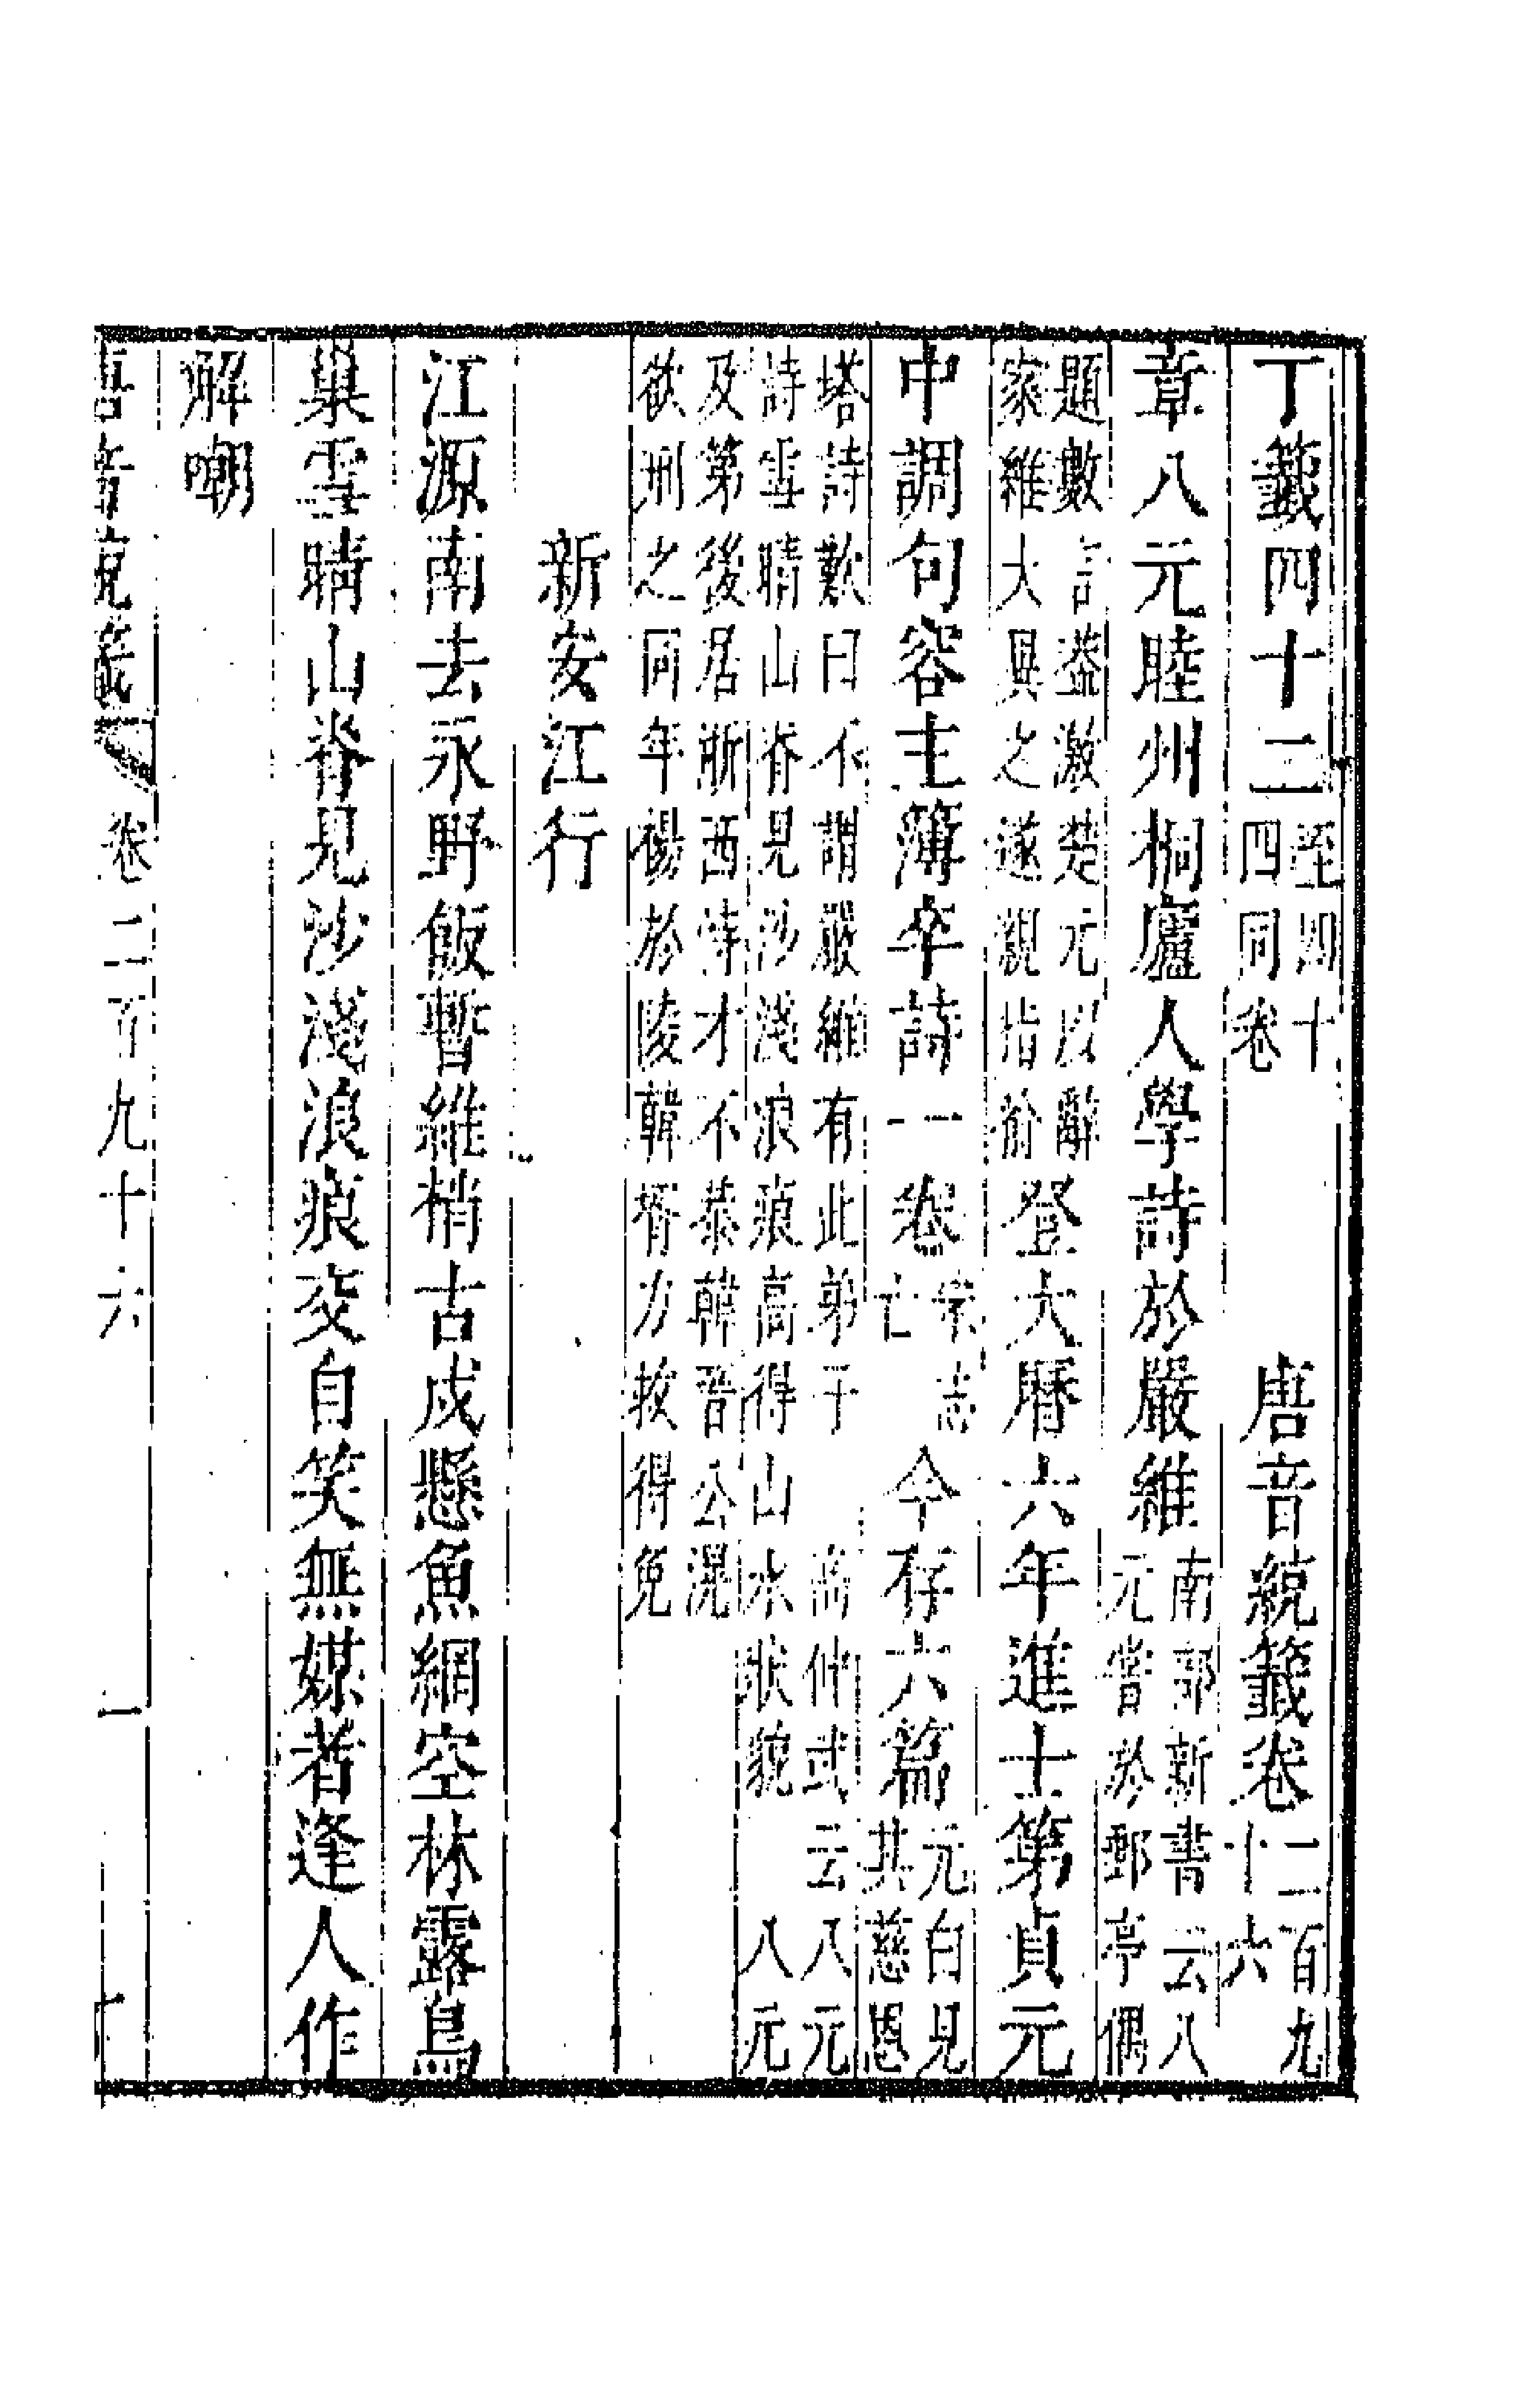 丁籤四十二至四十四同卷　唐音統籤卷二百九十六
章八元睦州桐廬人學詩於嚴維南部新書云八元嘗於郵亭偶
題數言蓋激楚元以辭家維大異之遂親指喻登大曆六年進士第貞元
中調句容主簿卒詩一卷宋志亡今存六篇元白見共慈恩
塔詩歎曰不謂嚴維有此弟子　高仲武云八元詩雪晴山脊見沙淺浪痕高得山水狀貌　八元
及第後居浙西恃才不恭韓晉公滉欲刑之同年楊於陵韓揹力救得免
新安江行
江源南去永野飯暫維梢古戍懸魚網空林露鳥
巢雪晴山脊見沙淺浪痕交自笑無媒者逢人作
解嘲
唐音統籤　卷二百九十六　一